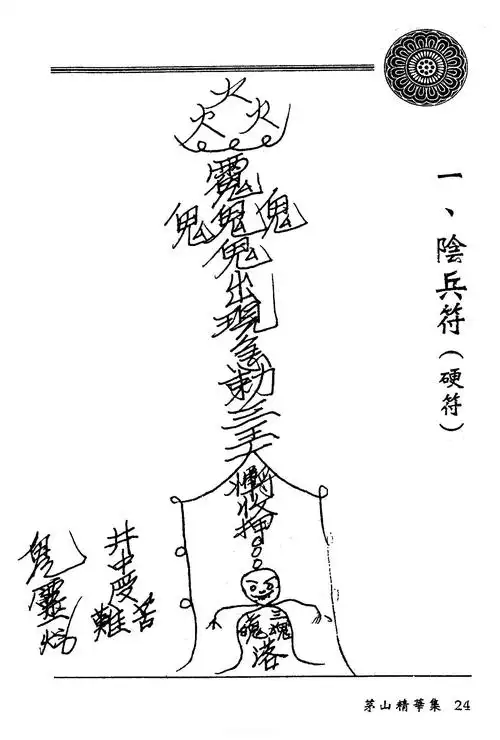 一、陰兵符(硬符)
火
火 火
鬼 鬼 鬼
鬼
出
現
急
勅
三
天
收
押
三魂
落
井中受
難苦
鬼
靈
茅山精華集 24